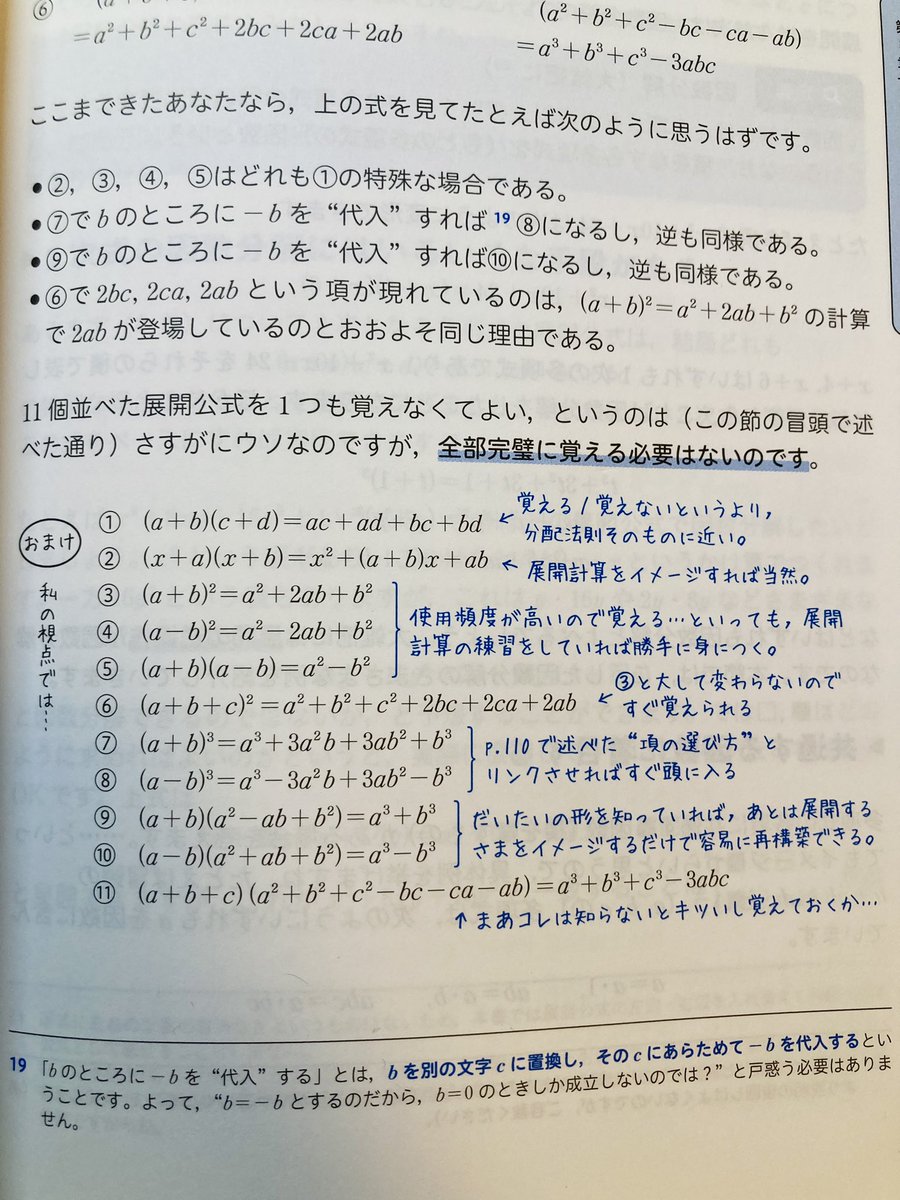 ⑥
=a²+b²+c²+2bc+2ca+2ab
(a²+b²+c²−bc−ca−ab)
=a³+b³+c³−3abc
ここまできたあなたなら，上の式を見てたとえば次のように思うはずです。
•②，③，④，⑤はどれも①の特殊な場合である。
•⑦でbのところに−bを“代入”すれば19 ⑧になるし，逆も同様である。
•⑨でbのところに−bを“代入”すれば⑩になるし，逆も同様である。
•⑥で2bc, 2ca, 2abという項が現れているのは，(a+b)²=a²+2ab+b²の計算
で2abが登場しているのとおおよそ同じ理由である。
11個並べた展開公式を1つも覚えなくてよい，というのは（この節の冒頭で述
べた通り）さすがにウソなのですが，全部完璧に覚える必要はないのです。
おまけ
私の視点では…
① (a+b)(c+d)=ac+ad+bc+bd ←覚える/覚えないというより，
分配法則そのものに近い。
② (x+a)(x+b)=x²+(a+b)x+ab ←展開計算をイメージすれば当然。
③ (a+b)²=a²+2ab+b²
④ (a−b)²=a²−2ab+b²
⑤ (a+b)(a−b)=a²−b²
使用頻度が高いので覚える…といっても，展開
計算の練習をしていれば勝手に身につく。
⑥ (a+b+c)²=a²+b²+c²+2bc+2ca+2ab ←③と大して変わらないので
すぐ覚えられる
⑦ (a+b)³=a³+3a²b+3ab²+b³
⑧ (a−b)³=a³−3a²b+3ab²−b³
p.110で述べた“項の選び方”と
リンクさせればすぐ頭に入る
⑨ (a+b)(a²−ab+b²)=a³+b³
⑩ (a−b)(a²+ab+b²)=a³−b³
だいたいの形を知っていれば，あとは展開する
さまをイメージするだけで容易に再構築できる。
⑪ (a+b+c)(a²+b²+c²−bc−ca−ab)=a³+b³+c³−3abc
↑まあコレは知らないとキツいし覚えておくか…
19 「bのところに−bを“代入”する」とは，bを別の文字cに置換し，そのcにあらためて−bを代入するとい
うことです。よって，“b=−bとするのだから，b=0のときしか成立しないのでは？”と戸惑う必要はありま
せん。